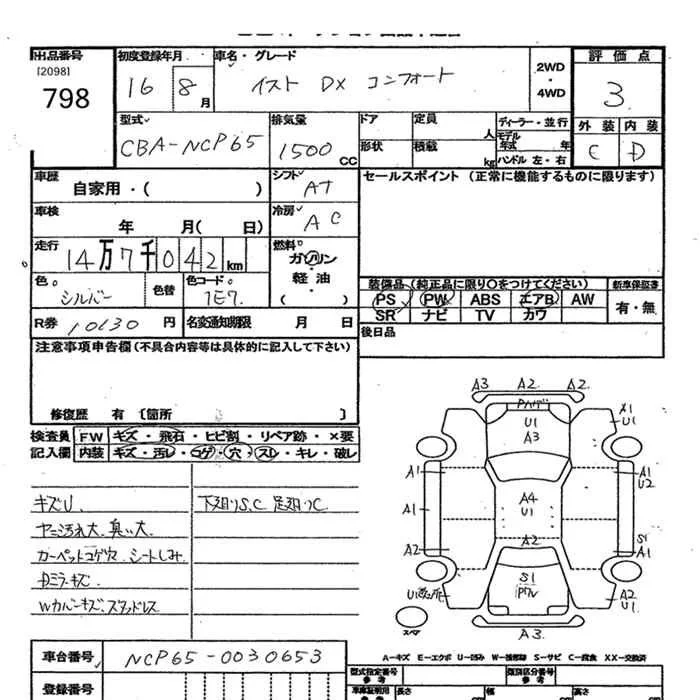 出品番号 初度登録年月 車名・グレード 評価点
[2098]
798 16 8 月 イスト DX コンフォート 2WD ・ 4WD 3
型式 排気量 ドア 定員 人 ディーラー・並行 外装 内装
CBA-NCP65 1500 CC モデル 年式 年 C D
形状 積載 kg ハンドル 左・右
車歴 シフト セールスポイント (正常に機能するものに限ります)
自家用・( ) AT
車検 冷房
年 月( 日) AC
走行 燃料
14万7千042km ガソリン・軽油・( )
色 色替 色コード 装備品 (純正品に限り○をつけてください) 新車保証書
シルバー 1E7 PS PW ABS エアB AW 有・無
SR ナビ TV カワ
R券 10130 円 名変通知期限 月 日 後日品
注意事項申告欄 (不具合内容等は具体的に記入して下さい)
修復歴 有 〔箇所 〕
検査員 FW キズ・飛石・ヒビ割・リペア跡・×要
記入欄 内装 キズ・汚レ・コゲ・穴・スレ・キレ・破レ
キズU. 下廻りS,C 足廻りC
ヤニ汚れ大. 臭い大.
カーペットコゲ穴 シートしみ.
Dミラーキズ.
Wカバーキズ.スタッドレス
A3 A2 A2
U1
A3
X1
U1
A1 A1
U2
A4
U1
A1
A2 A2 S1
A1
S1
U1 A2
U1
スペア A3
A-キズ E-エクボ U-凹み W-補修跡 S-サビ C-腐食 XX-交換済
車台番号 NCP65-0030653
型式指定番号 参考 類別区分番号 参考
登録番号 車庫証明用 参考 長さ 幅 高さ